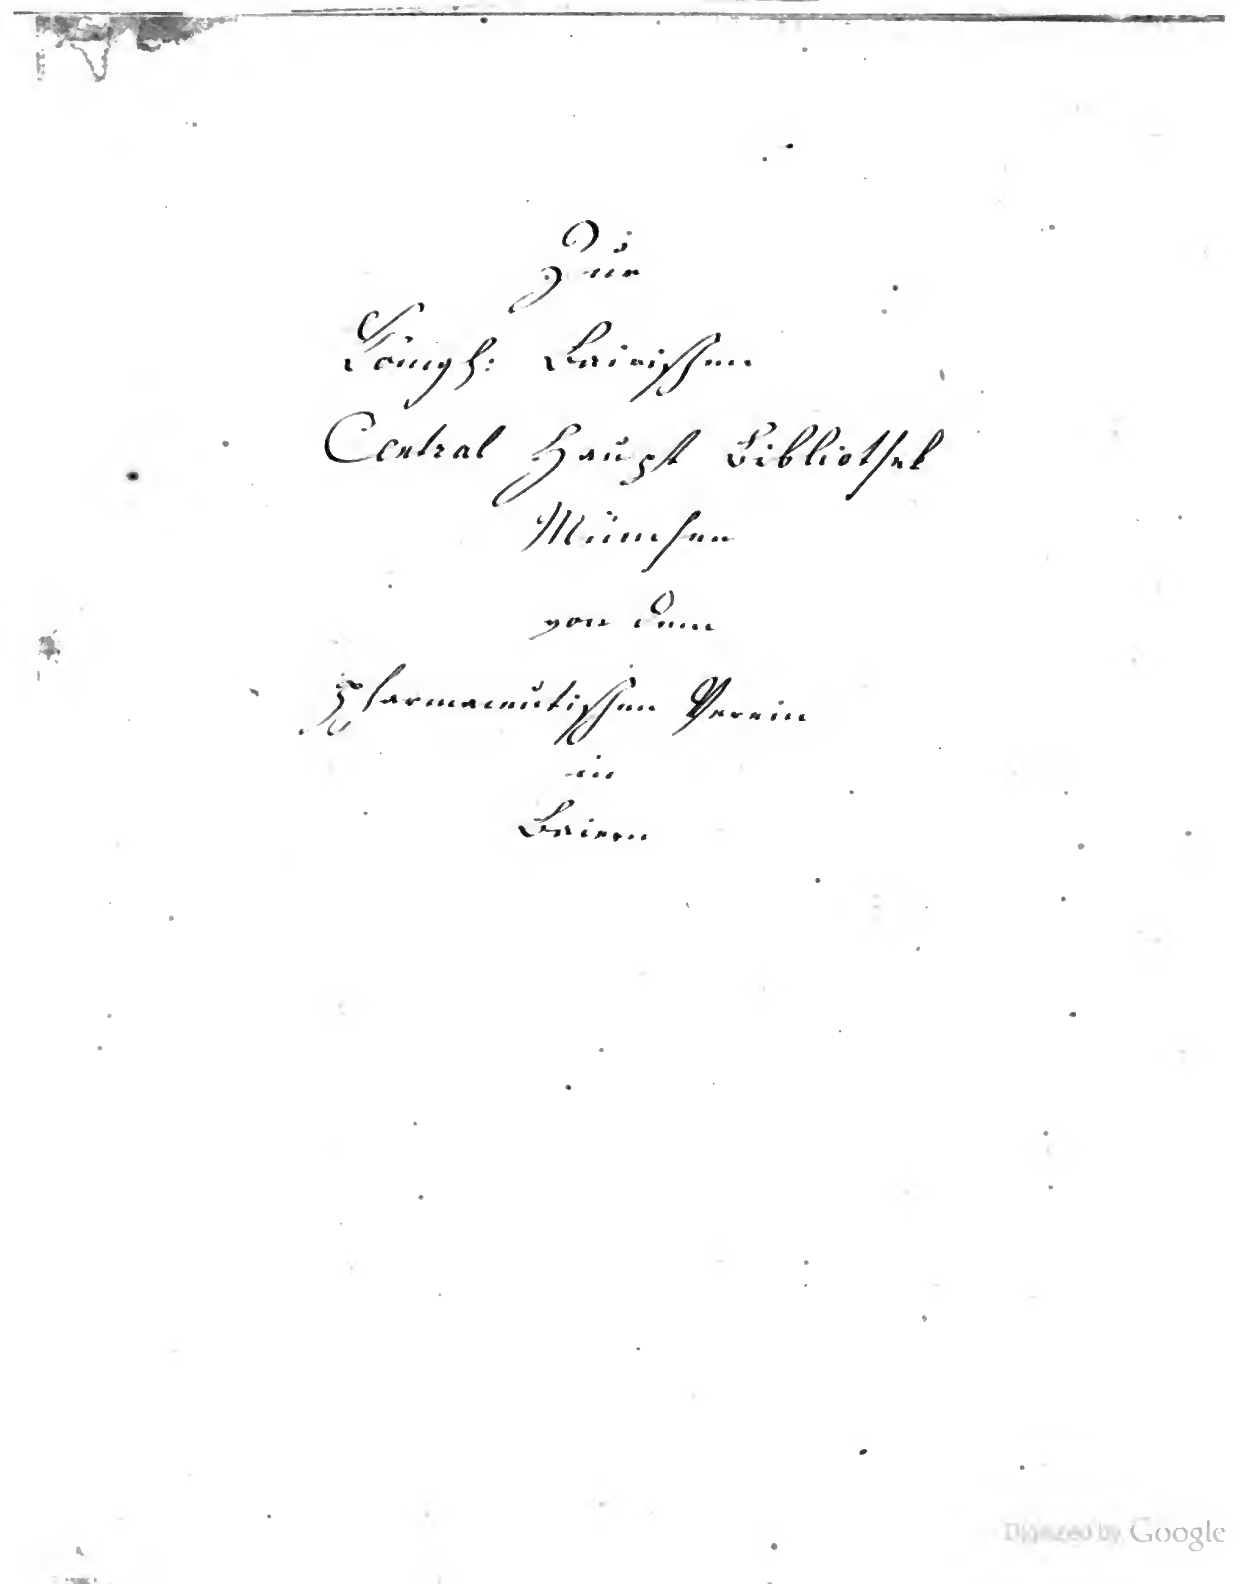 Zur
Königl: Bairischen
Central Haupt Bibliothek
München
von dem
Pharmaceutischen Verein
in
Baiern
Digitized by Google